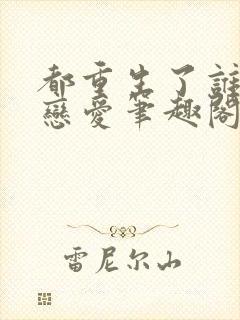 都重生了誰
戀愛筆趣閣
雷尼尔山